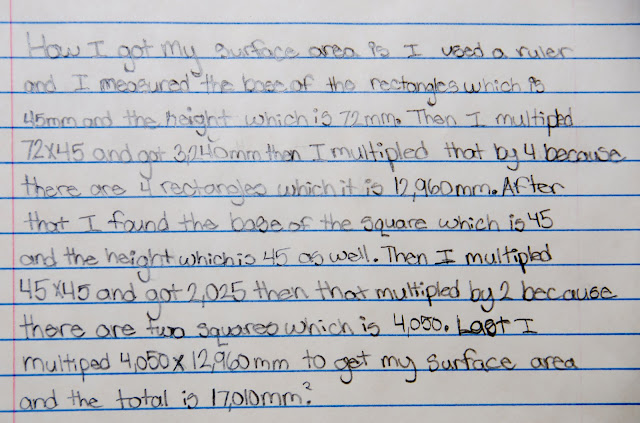 How I got my surface area is I used a ruler
and I measured the base of the rectangles which is
45mm and the height which is 72mm. Then I multipled
72x45 and got 3,240mm then I multipled that by 4 because
there are 4 rectangles which it is 12,960mm. After
that I found the base of the square which is 45
and the height which is 45 as well. Then I multipled
45x45 and got 2,025 then that multipled by 2 because
there are two squares which is 4,050. Last I
multiped 4,050x12,960mm to get my surface area
and the total is 17,010mm².